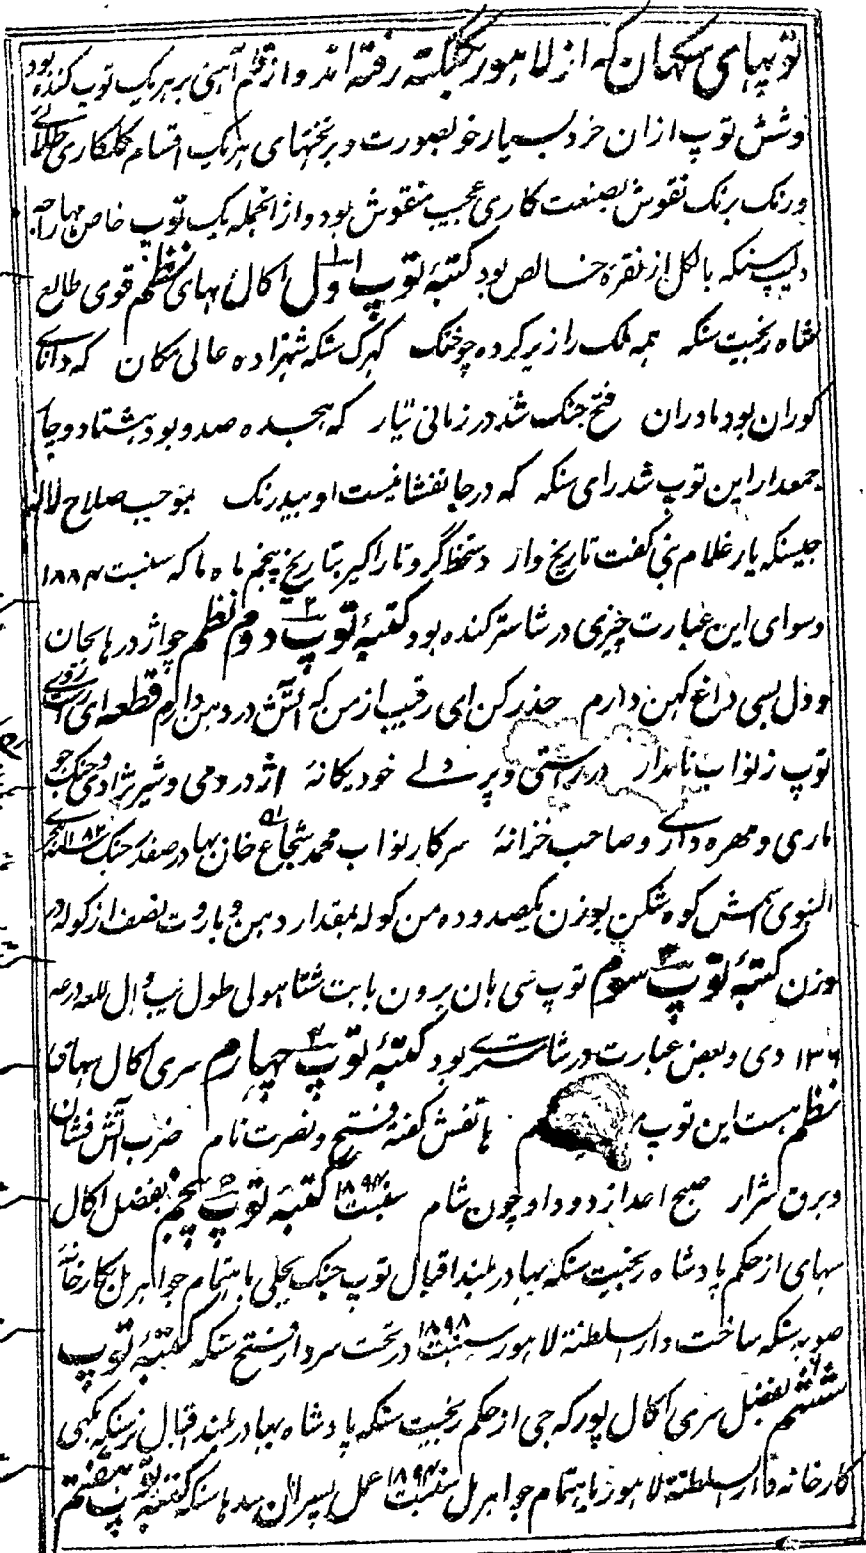 توپهای سکهان که از لاهور بکلکته رفته اند و از قلم آهنی بر هر یک توپ کنده بود
و شش توپ ازان خرد بسیار خوبصورت و بر تختهای هر یک اقسام گلکاری طلائے
و رنک برنک نقوش بصنعت کاری عجیب منقوش بود و ازانجمله یک توپ خاص مهاراجه
دلیپ سنکه بالکل از نقره خالص بود کتبهٔ توپ اول اکال سهای نظم قوی طالع
شاه رنجیت سنکه همه ملک را زیر کرده چو خنک کهرک سنکه شهزاده عالی مکان که دانای
کوران بود مادران فتح جنک شد در زمانی تیار که هجده صد و بود هشتاد و چار
جمعدار این توپ شد رای سنکه که در جانفشانیست او بیدرنک بموجب صلاح لاله
جیسنکه یار غلام نبی گفت تاریخ وار دستخط گرو تار اکبر بتاریخ پنجم ماه ماکه سنبت ۱۸۸۴
و سوای این عبارت چیزی در شاستر کنده بود کتبهٔ توپ دوم نظم چو اژدرها بجان
و دل بسی داغ کهن دارم حذر کن ای رقیب از من که آتش در دهن دارم قطعه ای
توپ ز نواب نامدار در راستی و پر دلے خود یکانهٔ اژدر دمی و شیر نژادی و جنک جو
ماری و مهره داری و صاحب خزانهٔ سرکار نواب محمد شجاع خان بهادر صفدر جنک سنه ۱۱۸۲ هجری
النبوی کوه شکن بوزن یکصد و ده من کوله بمقدار دهن و باروت نصف از کوله در
وزن کتبهٔ توپ سوم توپ سی بان برون بابت شتا هولی طول
۱۳۶ دی و بعض عبارت در شاستری بود کتبهٔ توپ چهارم سری اکال سهای
نظم هست این توپ هاتفش گفته فتح و نصرت نام ضرب آتش فشان
و برق شرار صبح اعدا ز دود او چون شام سنبت ۱۸۹۴ کتبهٔ توپ پنجم بفضل اکال
سهای از حکم پادشاه رنجیت سنکه بهادر بلند اقبال توپ جنک بجلی باهتمام جواهر مل بکارخانهٔ
صوبه سنکه ساخت دار السلطنة لاهور سنبت ۱۸۹۸ در تحت سردار فتح سنکه کتبهٔ توپ
ششم بفضل سری اکال پورکه جی از حکم رنجیت سنکه پادشاه بهادر بلند اقبال نرسنکه مکهی
کارخانه دار السلطنة لاهور باهتمام جواهر مل سنبت ۱۸۹۴ عمل پسران سدها سنکه کتبهٔ توپ هفتم